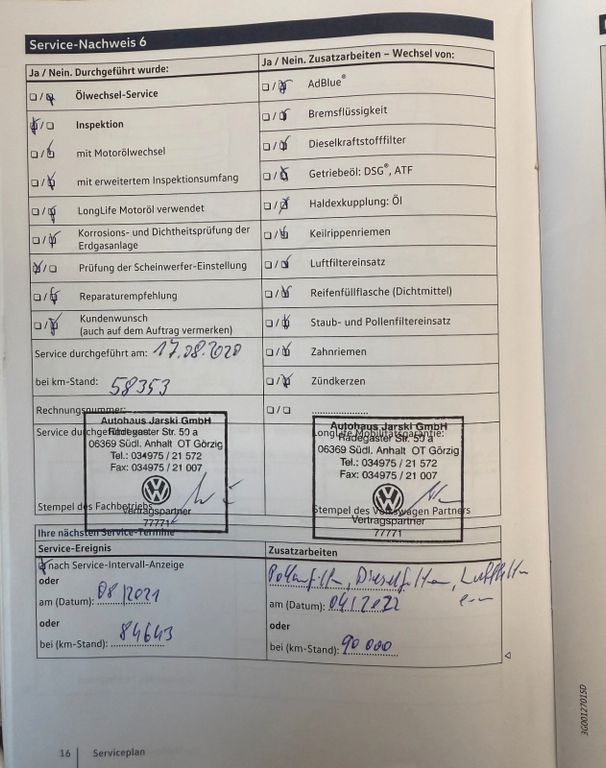 Service-Nachweis 6
Ja / Nein. Durchgeführt wurde:
Ja / Nein. Zusatzarbeiten – Wechsel von:
Ölwechsel-Service
AdBlue®
Inspektion
Bremsflüssigkeit
mit Motorölwechsel
Dieselkraftstofffilter
mit erweitertem Inspektionsumfang
Getriebeöl: DSG®, ATF
LongLife Motoröl verwendet
Haldexkupplung: Öl
Korrosions- und Dichtheitsprüfung der
Erdgasanlage
Keilrippenriemen
Prüfung der Scheinwerfer-Einstellung
Luftfiltereinsatz
Reparaturempfehlung
Reifenfüllflasche (Dichtmittel)
Kundenwunsch
(auch auf dem Auftrag vermerken)
Staub- und Pollenfiltereinsatz
Service durchgeführt am: 17.08.2020
Zahnriemen
bei km-Stand: 58353
Zündkerzen
Rechnungsnummer:
Service durchgeführt
Autohaus Jarski GmbH
Radegaster Str. 50 a
06369 Südl. Anhalt OT Görzig
Tel.: 034975 / 21 572
Fax: 034975 / 21 007
Vertragspartner
77771
Stempel des Fachbetriebs
LongLife Mobilitätsgarantie:
Autohaus Jarski GmbH
Radegaster Str. 50 a
06369 Südl. Anhalt OT Görzig
Tel.: 034975 / 21 572
Fax: 034975 / 21 007
Vertragspartner
77771
Stempel des Volkswagen Partners
Ihre nächsten Service-Termine
Service-Ereignis
Zusatzarbeiten
nach Service-Intervall-Anzeige
oder
am (Datum): 08/2021
oder
bei (km-Stand): 84643
Pollenfilter, Dieselfilter, Luftfilter
am (Datum): 04/2022
oder
bei (km-Stand): 90 000
16 Serviceplan
3G0012701SD